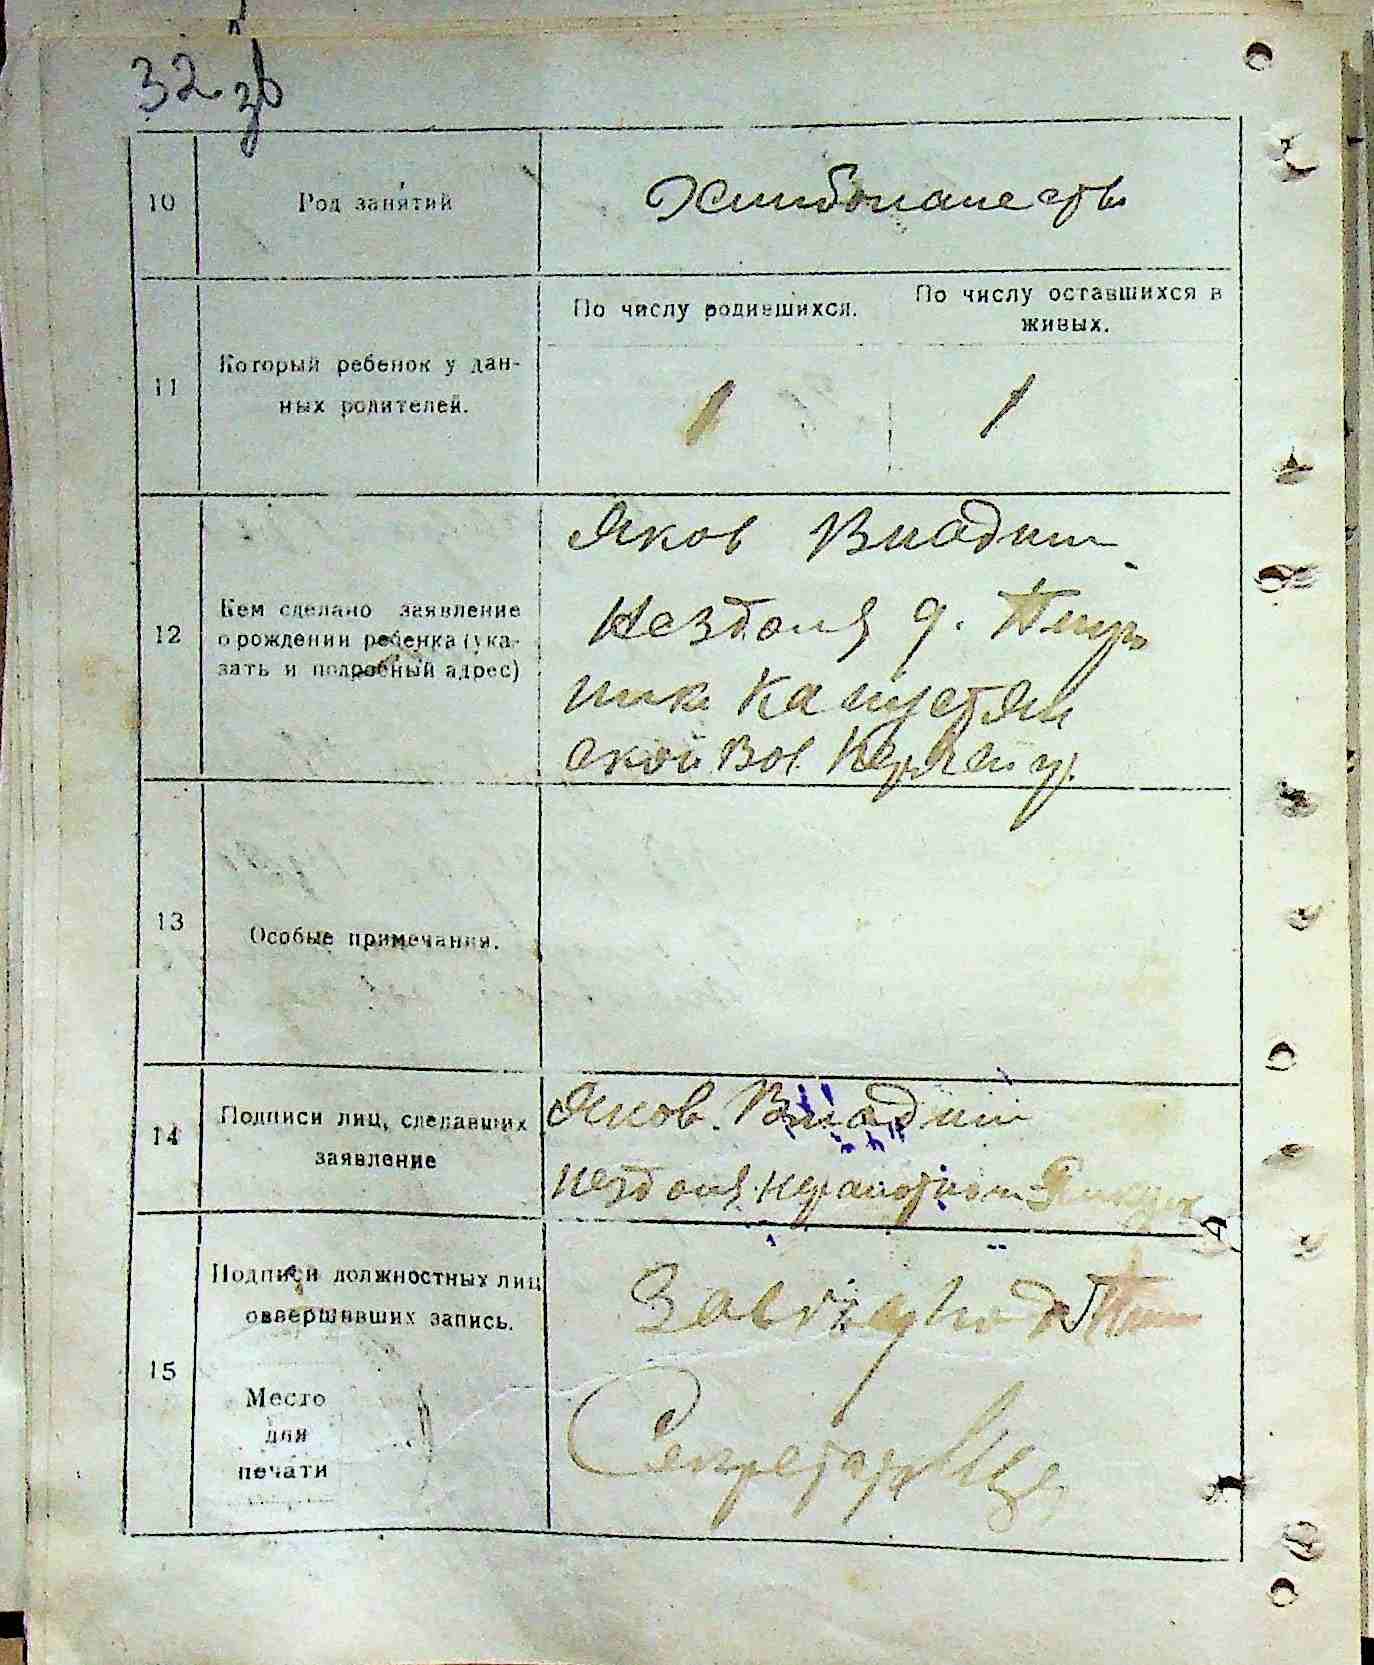 32 зв
10
Род занятий
Хлибопашество
11
Который ребенок у дан-
ных родителей.
По числу родившихся.
По числу оставшихся в
живых.
1
1
12
Кем сделано заявление
о рождении ребенка (ука-
зать и подробный адрес)
Яков Владим
Нездоля д.
Капустян
ской Вол
13
Особые примечания.
14
Подписи лиц, сделавших
заявление
Яков Владим
Нездоля
15
Подписи должностных лиц
совершивших запись.
Место
для
печати
Секретарь